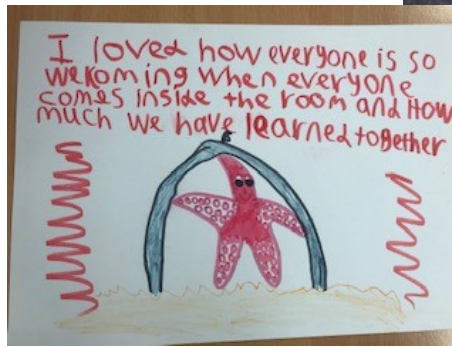 I loved how everyone is so
welcoming when everyone
comes inside the room and How
much we have learned together